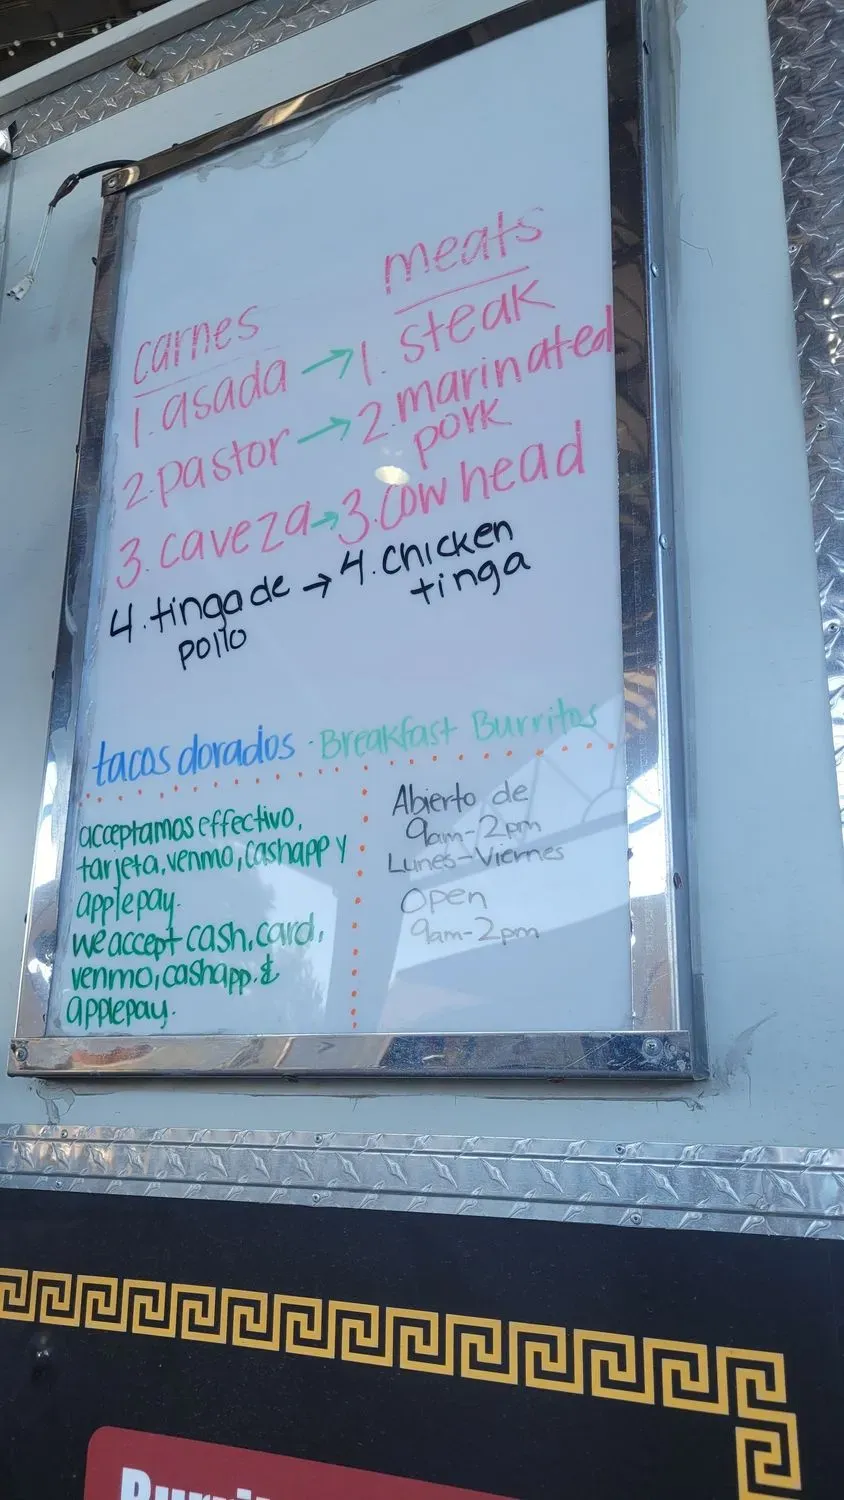 carnes
1. asada →
2. pastor →
3. caveza →
4. tinga de →
pollo
meats
1. steak
2. marinated
pork
3. Cow head
4. chicken
tinga
tacos dorados · Breakfast Burritos
acceptamos effectivo,
tarjeta, venmo, cashapp y
applepay.
we accept cash, card,
venmo, cashapp. &
applepay.
Abierto de
9am-2pm
Lunes-Viernes
Open
9am-2pm